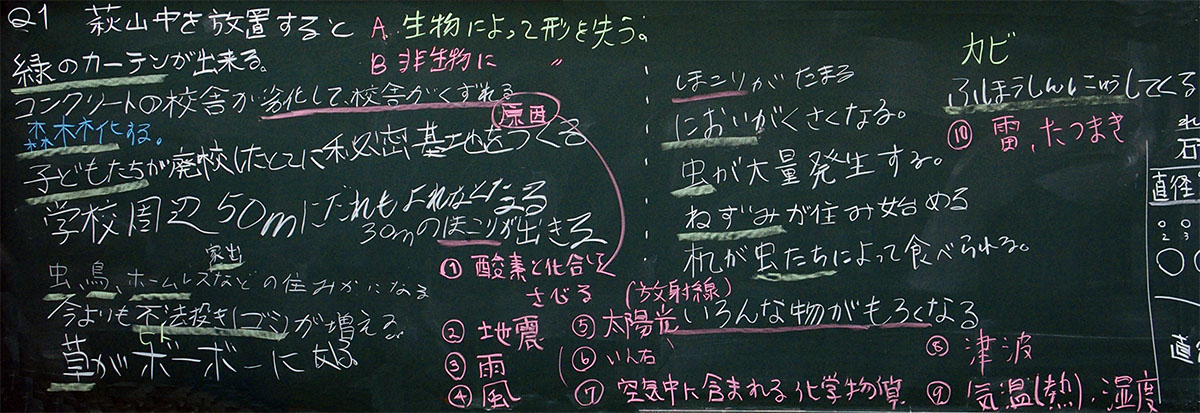 Q1 萩山中を放置すると
A 生物によって形を失う。
B 非生物に 〃
緑のカーテンが出来る。
コンクリートの校舎が劣化して校舎がくずれる
原因
森木木化する。
子どもたちが廃校したとこに秘密基地をつくる
学校周辺50mにだれもよれなくなる
30mのほこりが出きる
家出
虫、鳥、ホームレスなどの住みかになる
今よりも不法投き(ゴミ)が増える。
草がボーボーになる。
① 酸素と化合して
さびる
② 地震
③ 雨
④ 風
(放射線)
⑤ 太陽光
⑥ いん石
⑦ 空気中に含まれる化学物質
ほこりがたまる
においがくさくなる。
虫が大量発生する。
ねずみが住み始める
机が虫たちによって食べられる。
いろんな物がもろくなる
⑧ 津波
⑨ 気温(熱)、湿度
カビ
ふほうしんにゅうしてくる
⑩ 雷、たつまき
れ
石
直径
0 0
2 3
直